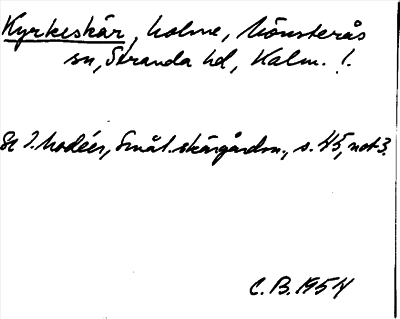 Kyrkeskär, holme, Mönsterås
sn, Stranda hd, Kalm. !.
Se I. Modéer, Smål. skärgårdsn., s. 45, not 3.
C.B. 1954